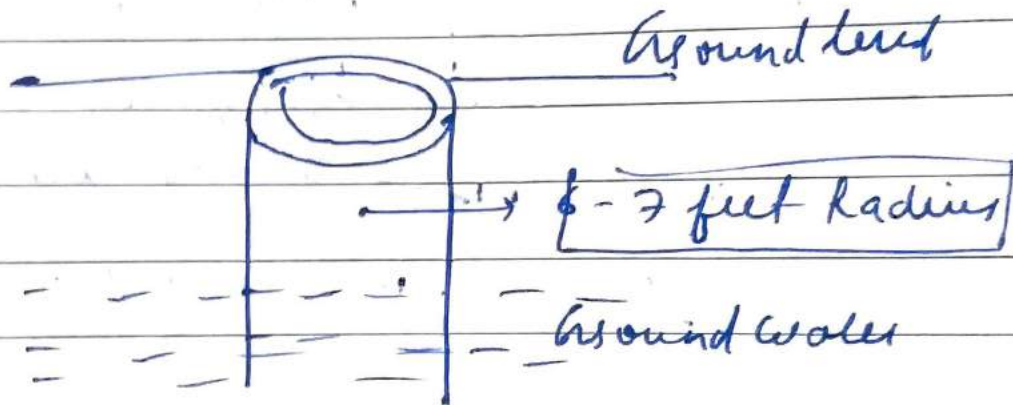 Ground level
6-7 feet Radius
Ground water